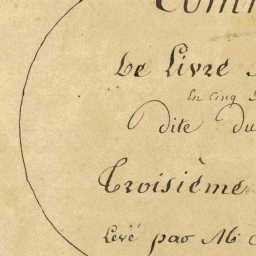 Le Livre
En Cinq
dite du
Troisième
Levé par M